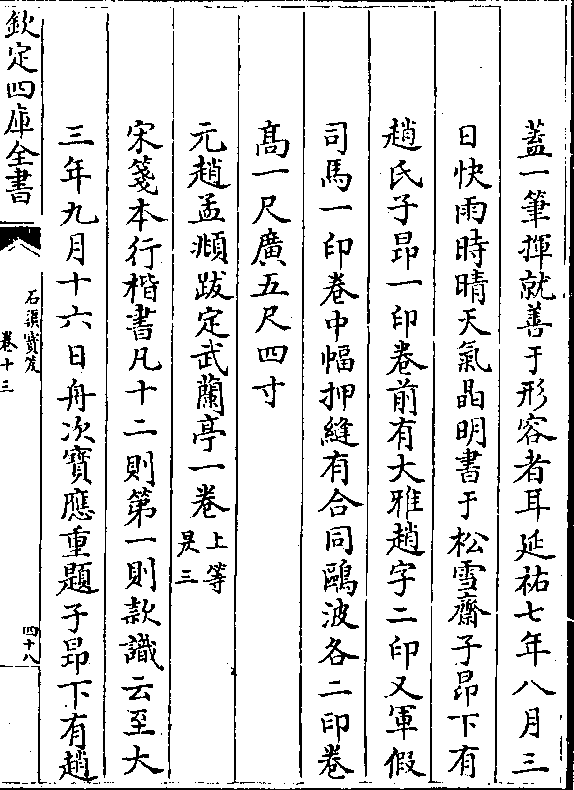 蓋一筆揮就善于形容者耳延祐七年八月三
日快雨時晴天氣晶明書于松雪齋子昂下有
趙氏子昂一印卷前有大雅趙字二印又軍假
司馬一印卷中幅押縫有合同鷗波各二印卷
髙一尺廣五尺四寸
元趙孟頫跋定武蘭亭一卷上等
昃三
宋箋本行楷書凡十二則第一則款識云至大
三年九月十六日舟次寶應重題子昂下有趙
欽定四庫全書
石渠寳笈
卷十三
四十八